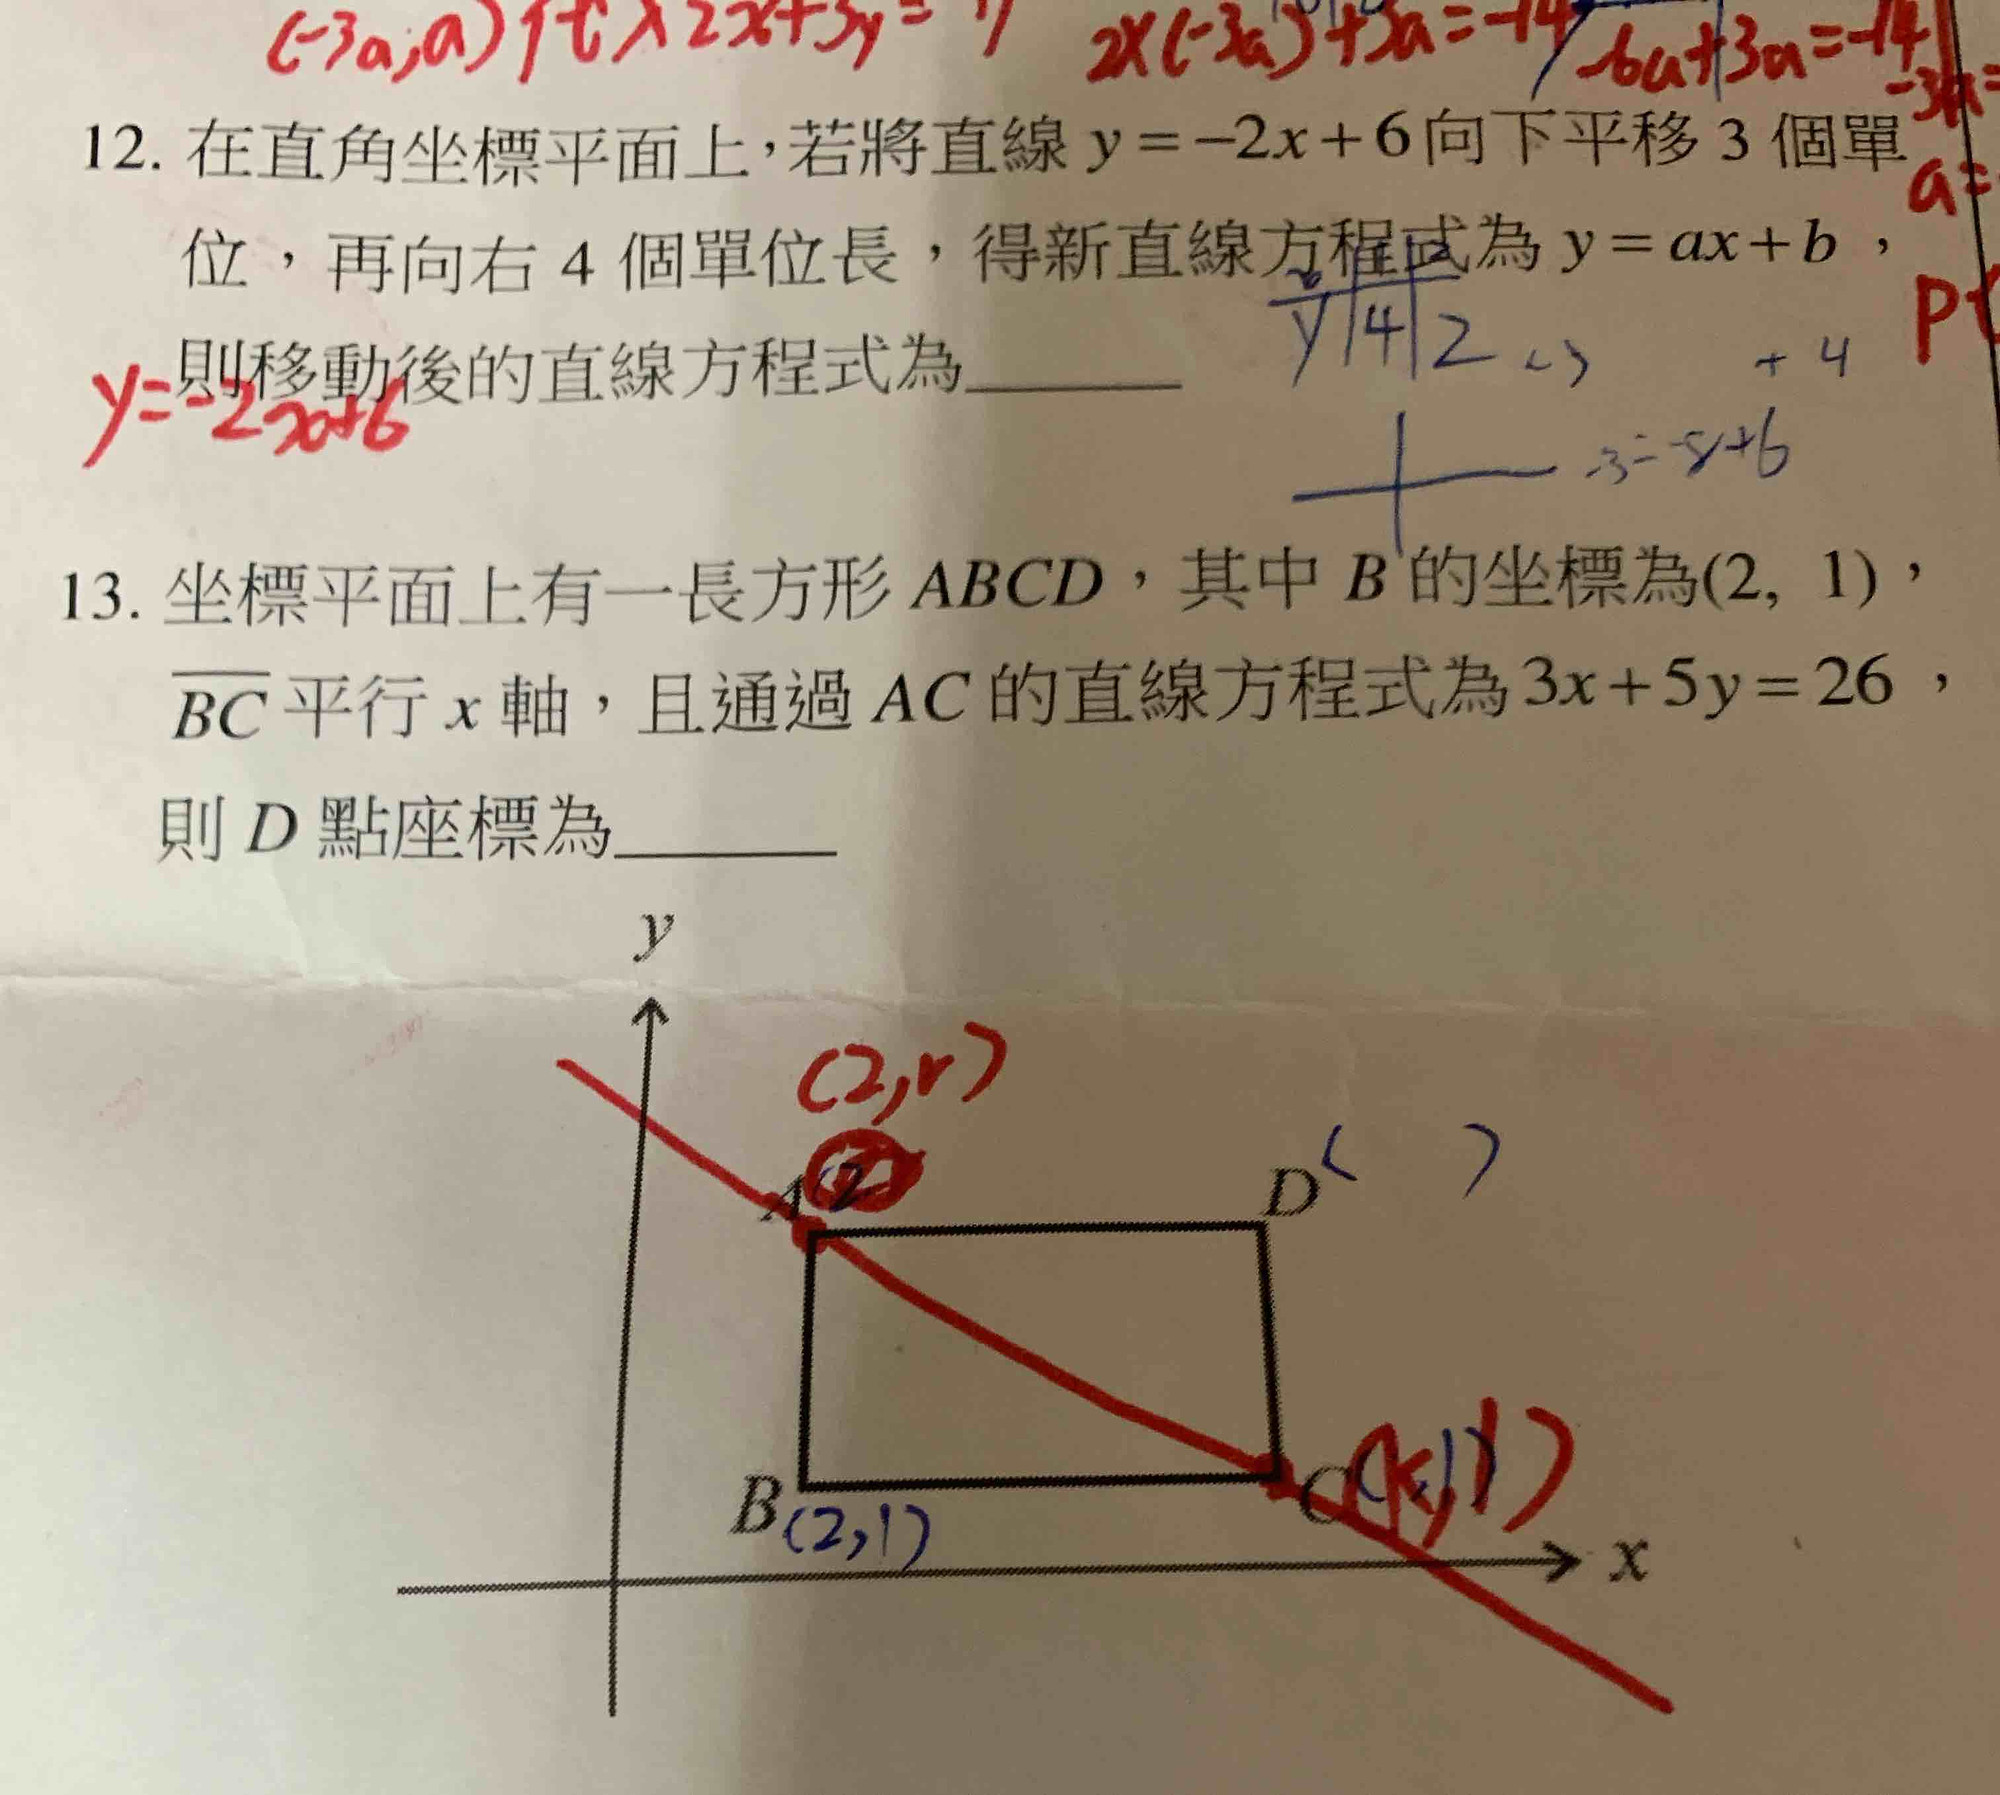 (-3a,a)代入2x+3y=
2×(-3a)+3a=-14
-6a+3a=-14
-3a=
a=
12. 在直角坐標平面上，若將直線 y=-2x+6向下平移 3 個單
位，再向右 4 個單位長，得新直線方程式為 y=ax+b，
則移動後的直線方程式為______
y=-2x+6
y 4 2
+4
-3=-8+6
P(
13. 坐標平面上有一長方形 ABCD，其中 B 的坐標為(2, 1)，
BC 平行 x 軸，且通過 AC 的直線方程式為3x+5y=26，
則 D 點座標為______
y
(2,r)
A
D( )
B(2,1)
C(k,1)
x